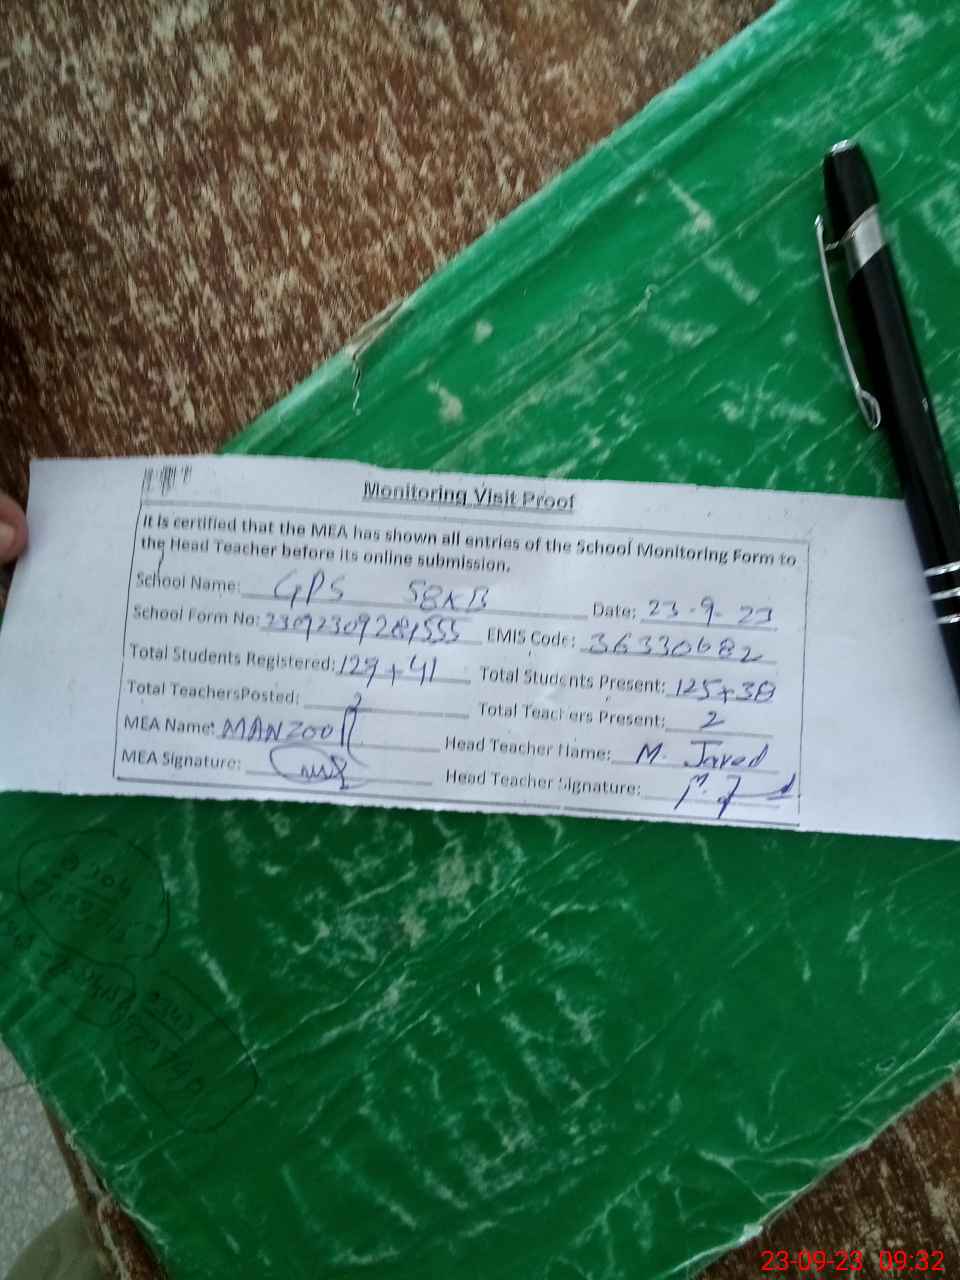 Monitoring Visit Proof
It is certified that the MEA has shown all entries of the School Monitoring Form to
the Head Teacher before its online submission.
School Name: GPS 58KB Date: 23-9-23
School Form No: EMIS Code: 36330682
Total Students Registered: 129+41 Total Students Present: 125+38
Total TeachersPosted: 2 Total Teachers Present: 2
MEA Name: MANZOOR Head Teacher Name: M. Javed
MEA Signature: Head Teacher Signature: M. J
23-09-23 09:32